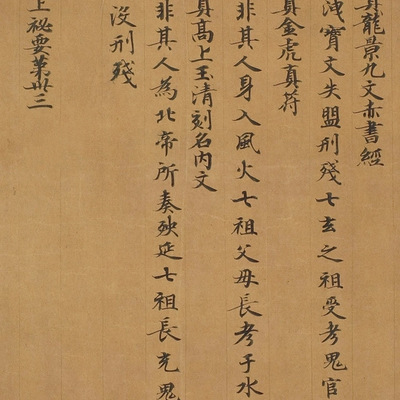 真龍景九文赤書經
洩寶文失盟刑殘七玄之祖受考鬼官
真金虎真符
非其人身入風火七祖父母長考于水
真高上玉清刻名内文
非其人為北帝所奏殃延七祖長充鬼
沒刑殘
上祕要第卅三